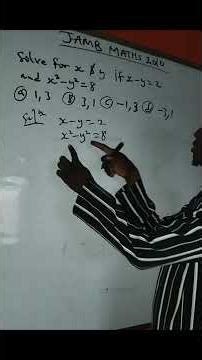 JAMB MATHS 2020
Solve for x & y if x-y=2
and x²-y²=8
Ⓐ 1,3 Ⓑ 3,1 Ⓒ -1,3 Ⓓ -3,1
Soln
x-y=2
x²-y²=8